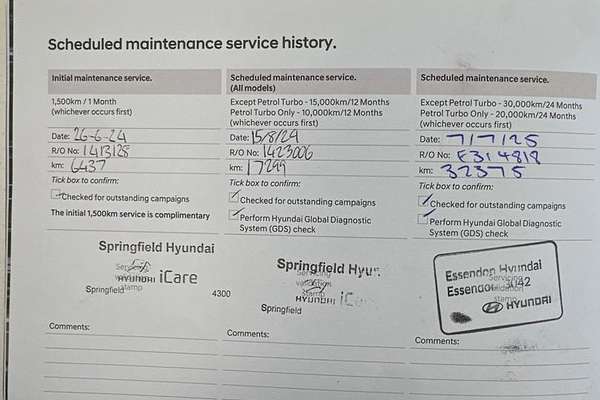 Scheduled maintenance service history.
Initial maintenance service.
1,500km / 1 Month
(whichever occurs first)
Date: 26-6-24
R/O No: 1413128
km: 6437
Tick box to confirm:
Checked for outstanding campaigns
The initial 1,500km service is complimentary
Springfield Hyundai
Servicing
HYUNDAI iCare
stamp
Springfield 4300
Comments:
Scheduled maintenance service.
(All models)
Except Petrol Turbo - 15,000km/12 Months
Petrol Turbo Only - 10,000km/12 Months
(whichever occurs first)
Date: 15/8/24
R/O No: 1423006
km: 17299
Tick box to confirm:
Checked for outstanding campaigns
Perform Hyundai Global Diagnostic
System (GDS) check
Springfield Hyun
Servicing
validation
stamp
HYUNDAI iC
Springfield
Comments:
Scheduled maintenance service.
Except Petrol Turbo - 30,000km/24 Months
Petrol Turbo Only - 20,000km/24 Months
(whichever occurs first)
Date: 7/7/25
R/O No: E314818
km: 32375
Tick box to confirm:
Checked for outstanding campaigns
Perform Hyundai Global Diagnostic
System (GDS) check
Essendon Hyundai
Servicing
Essendon 3042
validation
stamp
HYUNDAI
Comments: